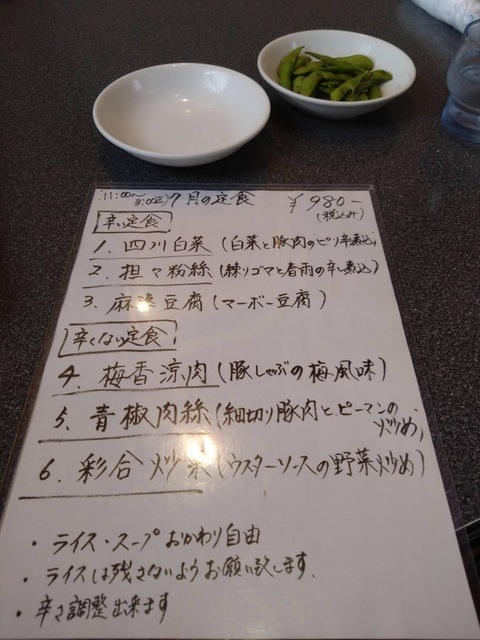 11:00〜3:00迄 7月の定食 ¥980-
(税込み)
辛い定食
1. 四川白菜 (白菜と豚肉のピリ辛煮込)
2. 担々粉絲 (練りゴマと春雨の辛し煮込)
3. 麻婆豆腐 (マーボー豆腐)
辛くない定食
4. 梅香涼肉 (豚しゃぶの梅風味)
5. 青椒肉絲 (細切り豚肉とピーマンの炒め)
6. 彩合炒菜 (ウスターソースの野菜炒め)
・ライス・スープおかわり自由
・ライスは残さないようお願い致します.
・辛さ調整出来ます